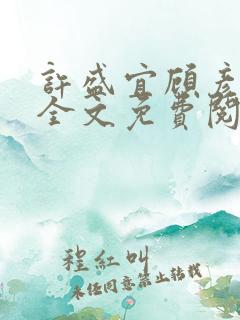 許盛宜顧彥
全文免費閱
程紅叫
未经同意禁止转载